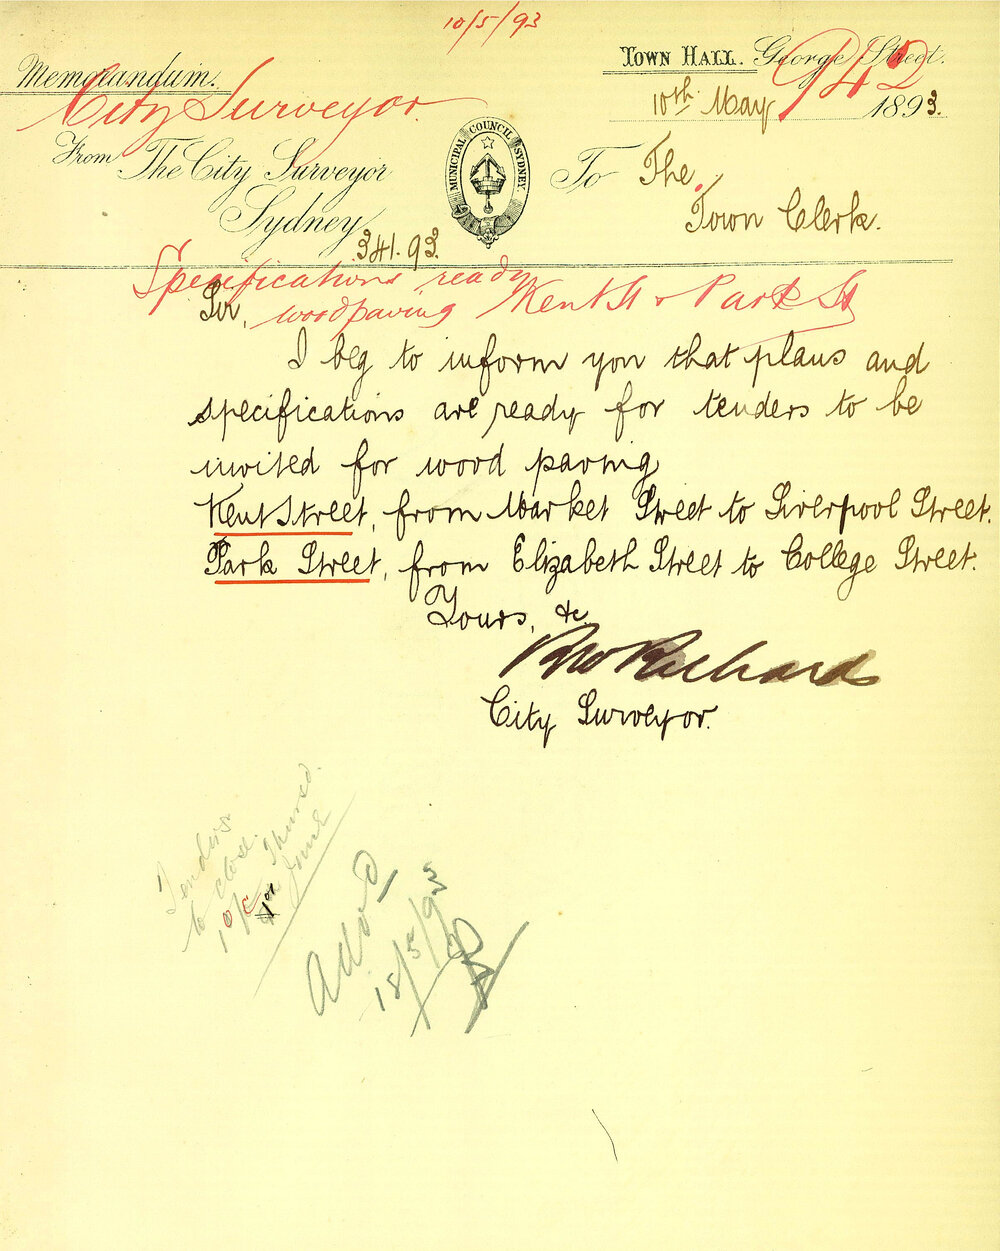 10/5/93
Memorandum.
TOWN HALL. George Street.
942
City Surveyor.
10th May 1893.
From The City Surveyor
Sydney
MUNICIPAL COUNCIL SYDNEY.
To The
Town Clerk.
341.93.
Specifications ready
woodpaving Kent St & Park St
Sir,
I beg to inform you that plans and
specifications are ready for tenders to be
invited for wood paving
Kent Street, from Market Street to Liverpool Street.
Park Street, from Elizabeth Street to College Street.
Yours, &c
RW Richards
City Surveyor.
Tenders
to close
Thursd.
June
Advd
18/5/93